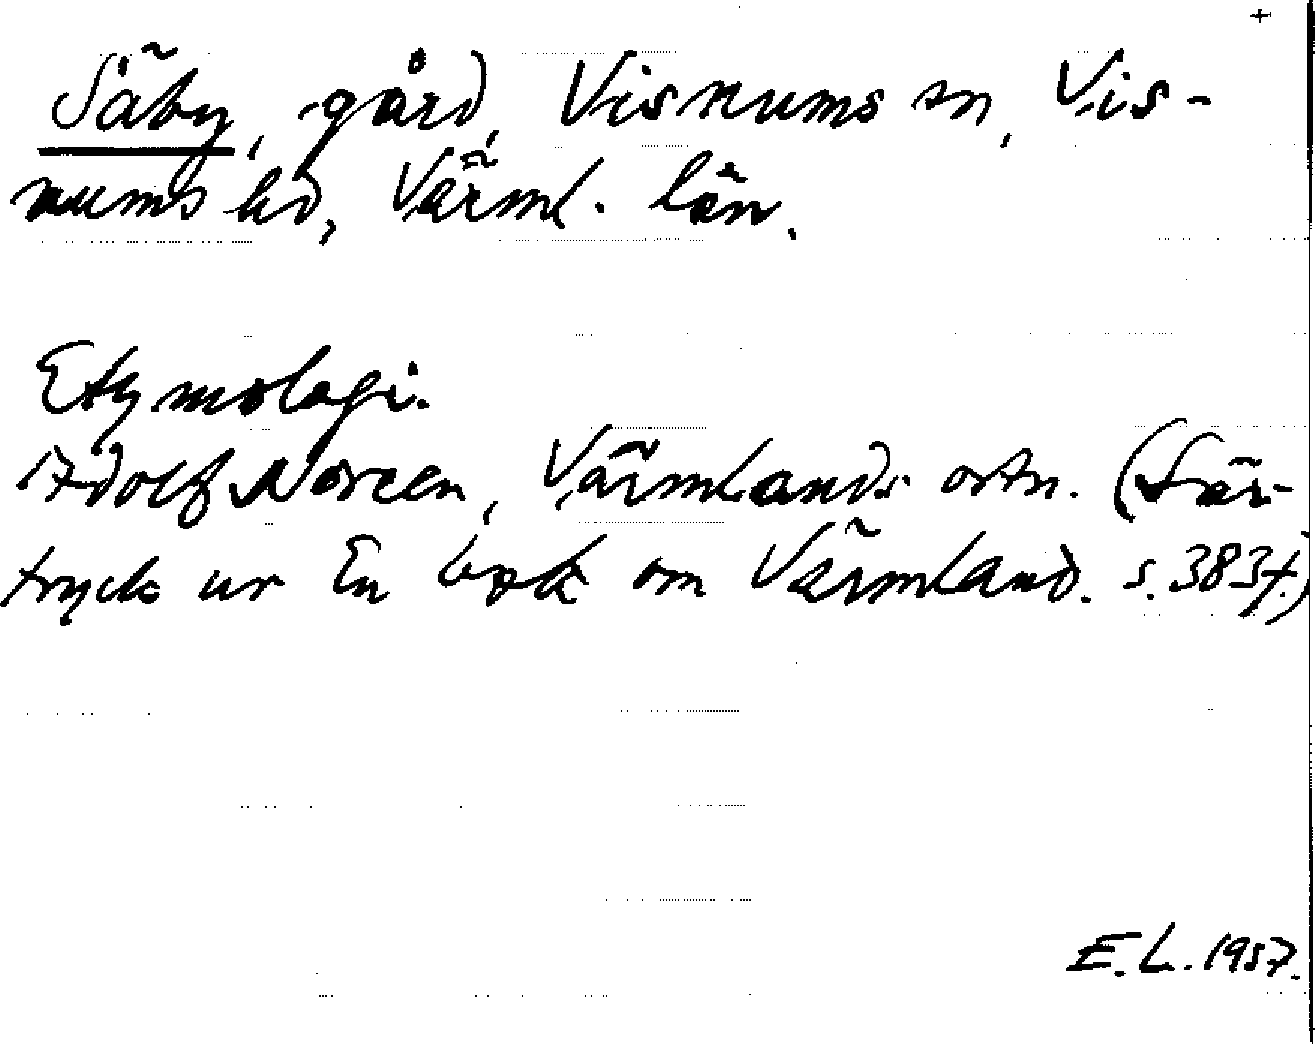 +
Säby, gård, Visnums sn, Vis-
nums hd, Värml. län.
Etymologi.
Adolf Noreen, Värmlands ortn. (Sär-
tryck ur En bok om Värmland. s. 383 f.)
E.L. 1957.